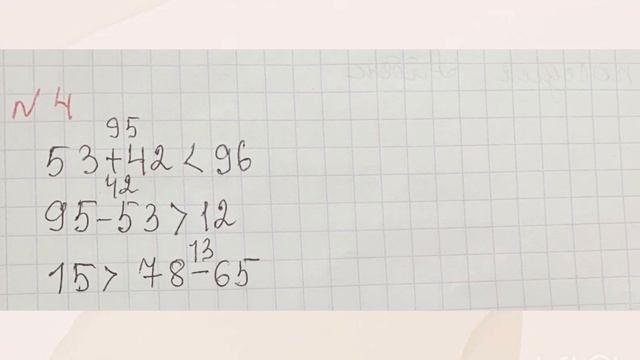 № 4
95
53+42<96
42
95-53>12
13
15>78-65